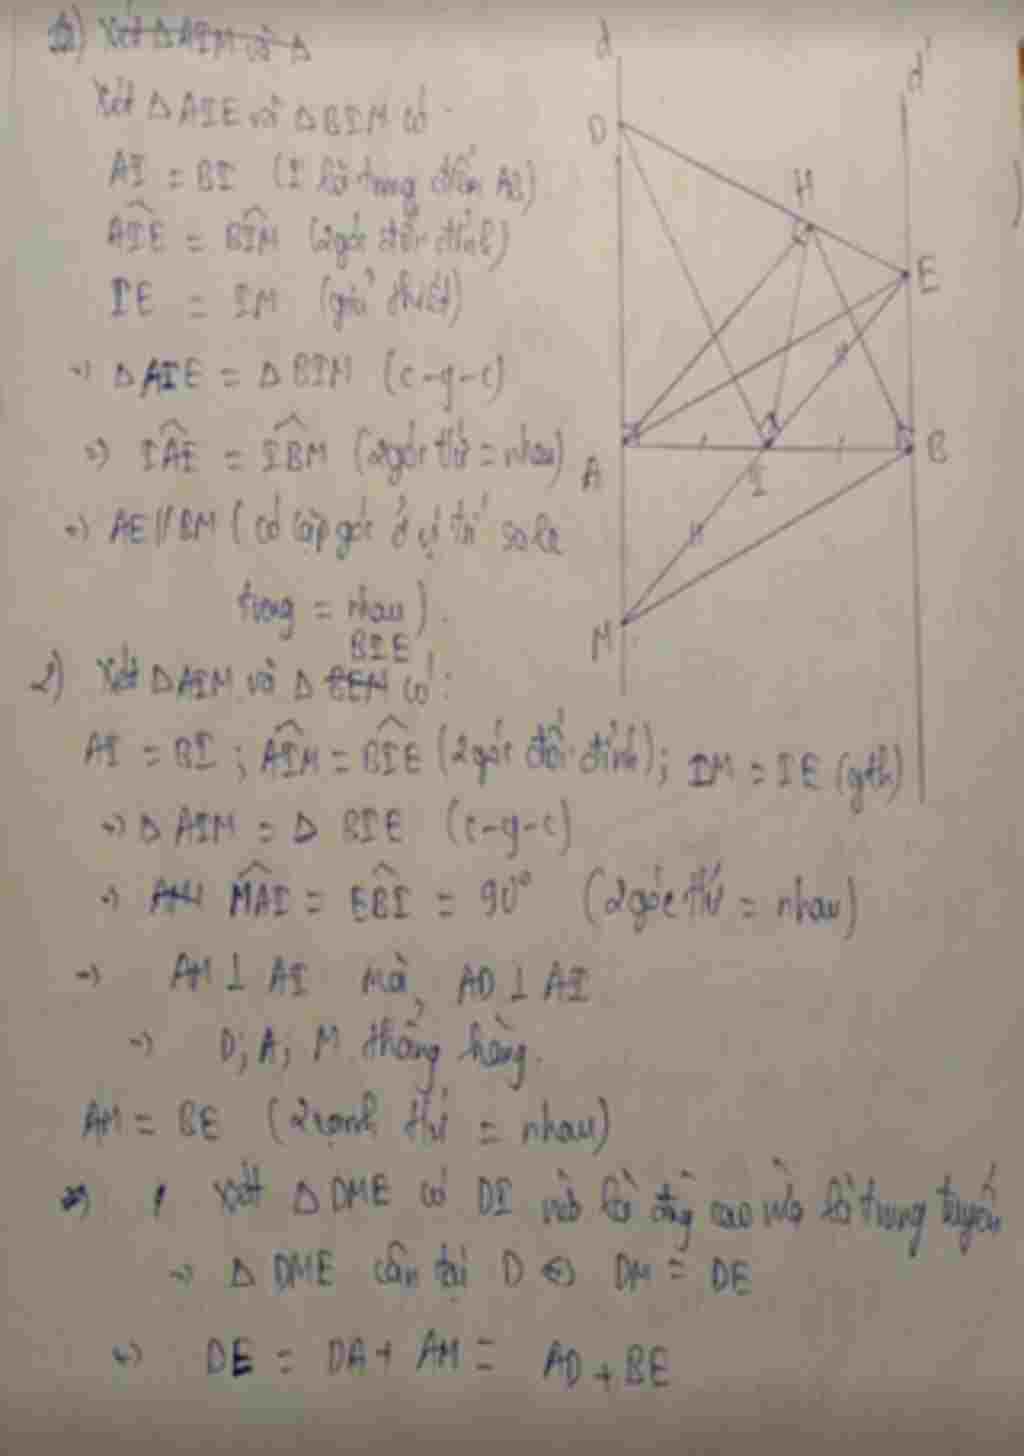 1) Xét Δ AIM và Δ
Xét Δ AIE và Δ BIM có
AI = BI (I là trung điểm AB)
AIE = BIM (2 góc đối đỉnh)
IE = IM (giả thiết)
=> Δ AIE = Δ BIM (c-g-c)
=> IAE = IBM (2 góc tứ = nhau)
=> AE // BM (có cặp góc ở vị trí so le
trong = nhau).
BIE
2) Xét Δ AIM và Δ BEM có:
AI = BI ; AIM = BIE (2 góc đối đỉnh); IM = IE (gth)
=> Δ AIM = Δ BIE (c-g-c)
=> MAI = EBI = 90° (2 góc tứ = nhau)
=> AM ⊥ AI mà AD ⊥ AI
=> D; A; M thẳng hàng.
AM = BE (2 cạnh tứ = nhau)
=> Xét Δ DME có DI vừa là đg cao vừa là trung tuyến
=> Δ DME cân tại D <=> DM = DE
=> DE = DA + AM = AD + BE
d
d'
D
H
E
A
I
B
M